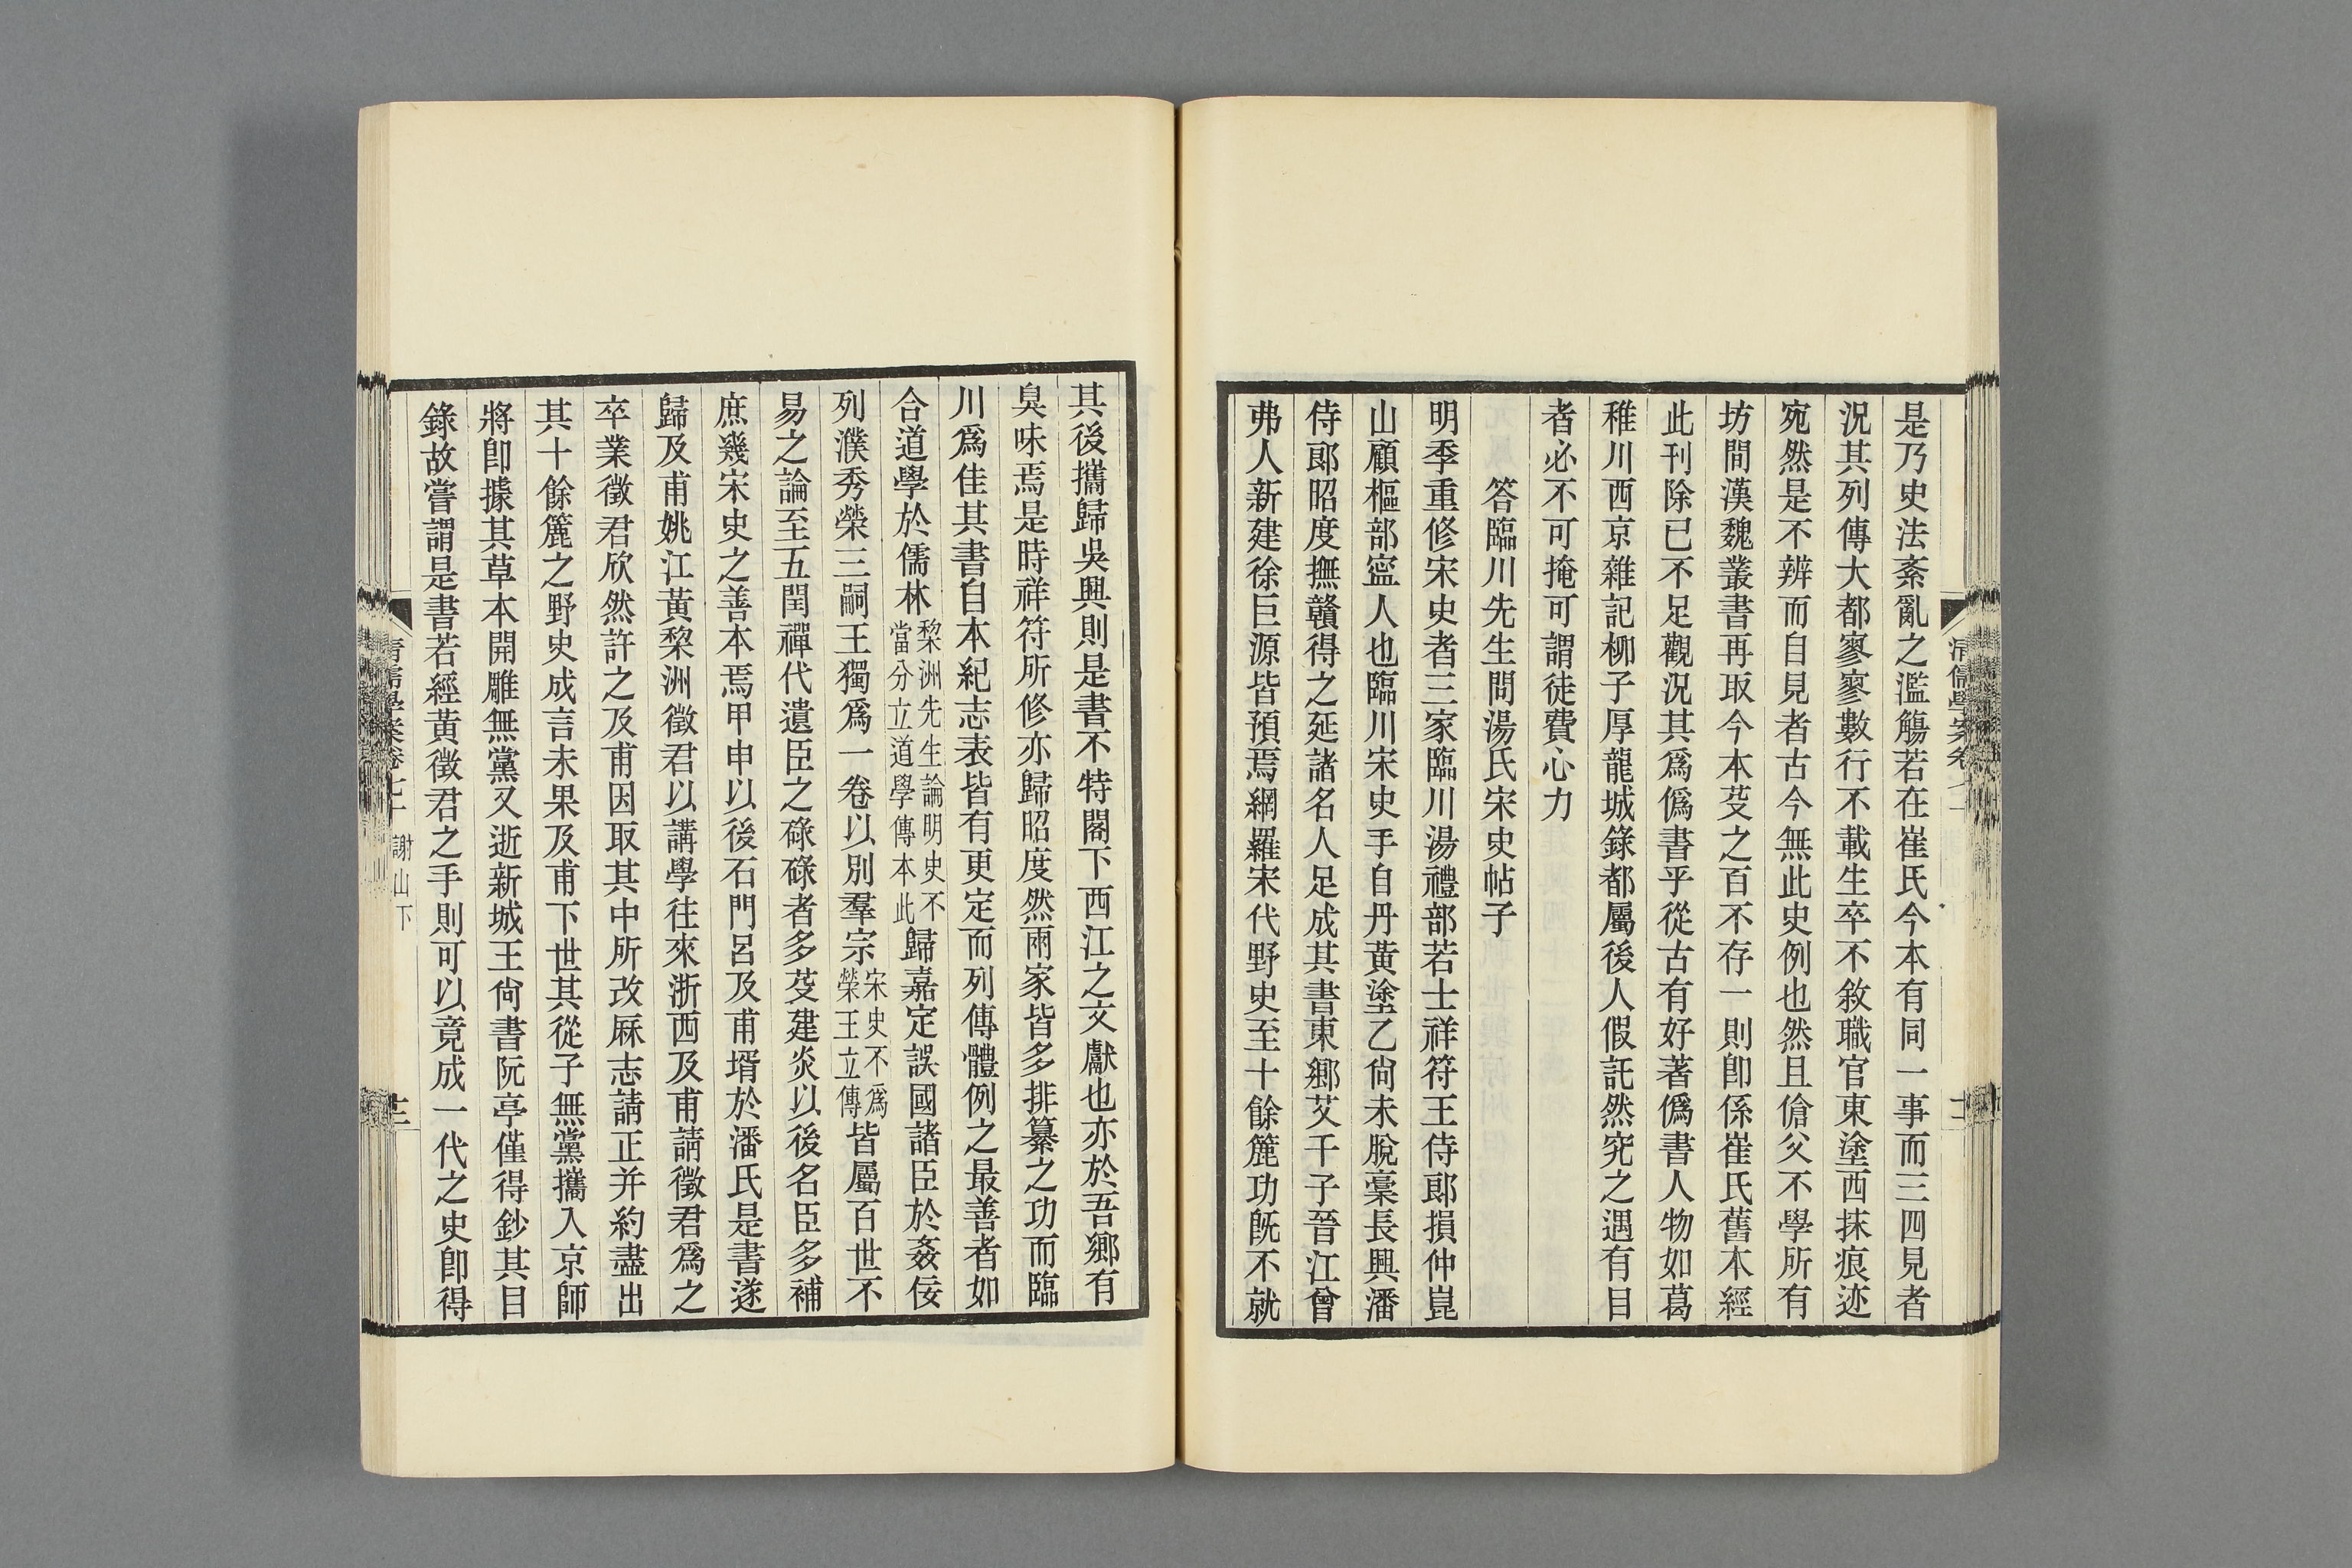 是乃史法紊亂之濫觴若在崔氏今本有同一事而三四見者
況其列傳大都寥寥數行不載生卒不敘職官東塗西抹痕迹
宛然是不辨而自見者古今無此史例也然且傖父不學所有
坊間漢魏叢書再取今本芟之百不存一則卽係崔氏舊本經
此刊除已不足觀況其爲僞書乎從古有好著僞書人物如葛
稚川西京雜記柳子厚龍城錄都屬後人假託然究之遇有目
者必不可掩可謂徒費心力
答臨川先生問湯氏宋史帖子
明季重修宋史者三家臨川湯禮部若士祥符王侍郎損仲崑
山顧樞部寍人也臨川宋史手自丹黃塗乙尙未脫稾長興潘
侍郎昭度撫贛得之延諸名人足成其書東鄉艾千子晉江曾
弗人新建徐巨源皆預焉網羅宋代野史至十餘簏功旣不就
其後攜歸吳興則是書不特閣下西江之文獻也亦於吾鄉有
臭味焉是時祥符所修亦歸昭度然兩家皆多排纂之功而臨
川爲佳其書自本紀志表皆有更定而列傳體例之最善者如
合道學於儒林黎洲先生論明史不當分立道學傳本此歸嘉定誤國諸臣於姦佞
列濮秀榮三嗣王獨爲一卷以別羣宗宋史不爲榮王立傳皆屬百世不
易之論至五閏禪代遺臣之碌碌者多芟建炎以後名臣多補
庶幾宋史之善本焉甲申以後石門呂及甫壻於潘氏是書遂
歸及甫姚江黃黎洲徵君以講學往來浙西及甫請徵君爲之
卒業徵君欣然許之及甫因取其中所改厤志請正并約盡出
其十餘簏之野史成言未果及甫下世其從子無黨攜入京師
將卽據其草本開雕無黨又逝新城王尙書阮亭僅得鈔其目
錄故嘗謂是書若經黃徵君之手則可以竟成一代之史卽得
清儒學案卷七十 謝山下